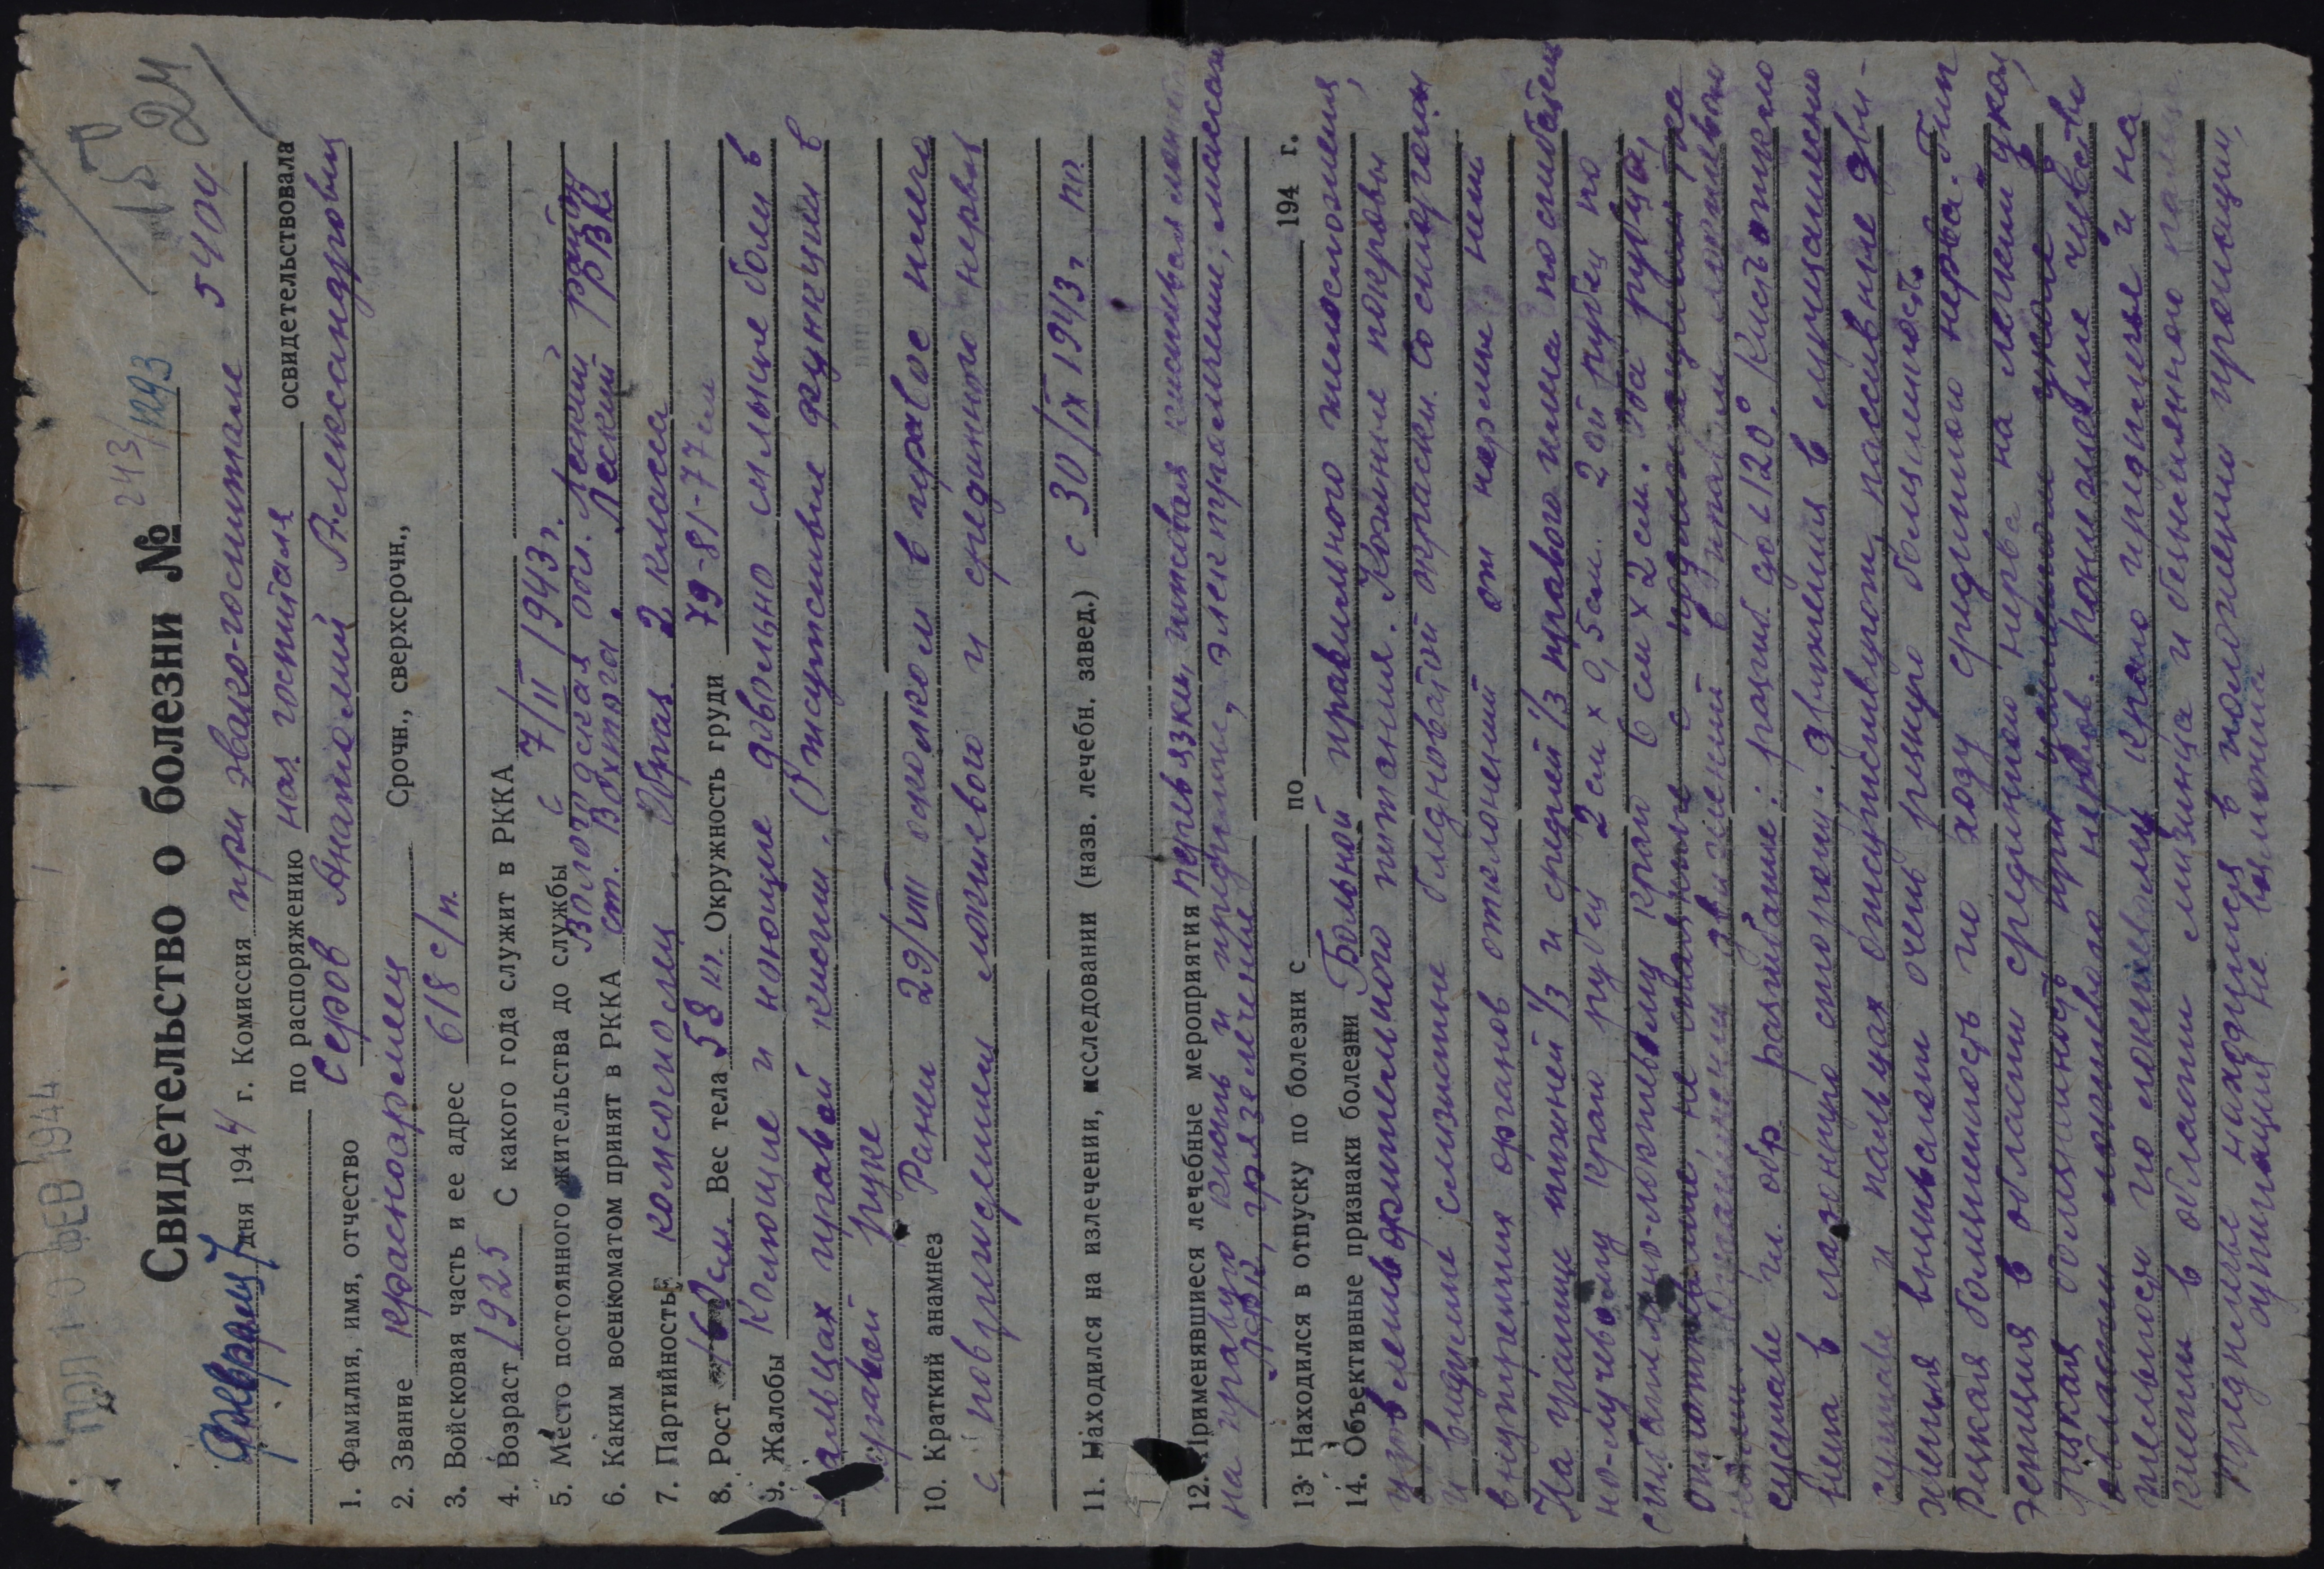 10 ФЕВ 1944
24
Свидетельство о болезни № 243/1293
февраля 7 дня 1944 г. Комиссия при эвако-госпитале 5404
по распоряжению нач. госпиталя освидетельствовала
1. Фамилия, имя, отчество Серов Анатолий Александрович
2. Звание красноармеец Срочн., сверхсрочн.,
3. Войсковая часть и ее адрес 618 с/п.
4. Возраст 1925 С какого года служит в РККА с 7/II 1943 г.
5. Место постоянного жительства до службы Вологодская обл. Леский район
6. Каким военкоматом принят в РККА ст. Вохтога. Леский РВК
7. Партийность комсомолец Образ. 2 класса
8. Рост см. Вес тела 58 кг. Окружность груди 79-81-77 см
9. Жалобы Колющие и ноющие довольно сильные боли в
пальцах правой кисти. Отсутствие функции в
правой руке
10. Краткий анамнез Ранен 29/VIII осколком в правое плечо
с повреждением локтевого и срединного нерва
11. Находился на излечении, исследовании (назв. лечебн. завед.) с 30/IX 1943 г. по
12. Применявшиеся лечебные мероприятия перевязки, гипсовая
на правую кисть и предплечье, электролечение, массаж
ЛФК, грязелечение
13. Находился в отпуску по болезни с по 194 г.
14. Объективные признаки болезни Больной правильного телосложения,
удовлетворительного питания. Кожные покровы
и видимые слизистые бледноватой окраски. Со стороны
внутренних органов отклонений от нормы нет
На границе нижней 1/3 и средней 1/3 правого плеча по сгибател
но-лучевому краю рубец 2 см х 0,5 см. 2ой рубец по
сгибательно-локтевому краю 6 см х 2 см. Оба рубца,
суставе до 120°. Кисть отвис
нета в ладонную сторону. Движения в лучезапястном
суставе и пальцах отсутствуют, пассивные дви-
жения вызывают очень резкую болезненность.
Резкая болезненность по ходу срединного нерва. Гип
эстезия в области срединного нерва на легкий укол,
резкая болезненность при
области локтевого нервов. Понижение чувстви
тельности по локтевому краю предплечье и на
кисти в области мизинца и безымянного пальца
Предплечье находится в положении пронации,
супинация не возможна